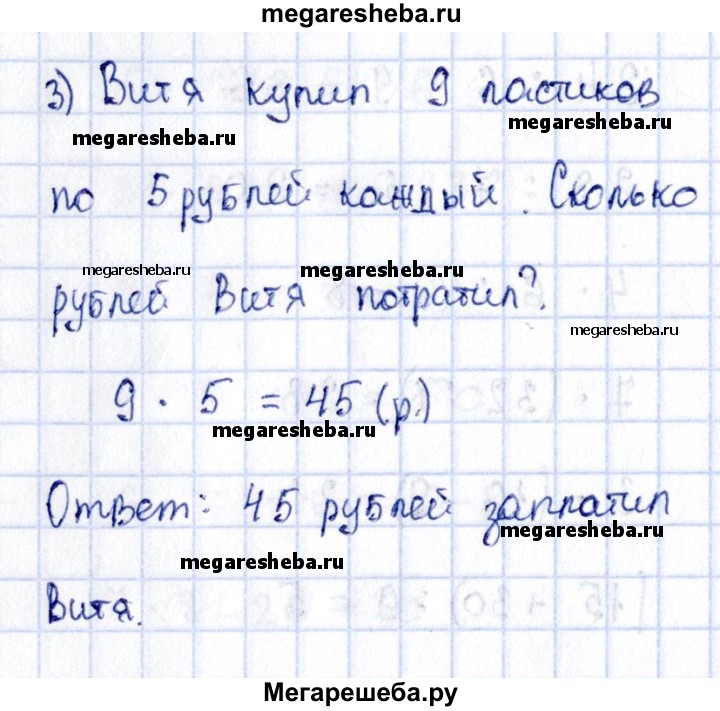 megaresheba.ru
3) Витя купил 9 ластиков
megaresheba.ru megaresheba.ru
по 5 рублей каждый. Сколько
megaresheba.ru megaresheba.ru
рублей Витя потратил?
megaresheba.ru
9 · 5 = 45 (р.)
megaresheba.ru
Ответ: 45 рублей заплатил
megaresheba.ru
megaresheba.ru
Витя.
Мегарешеба.ру